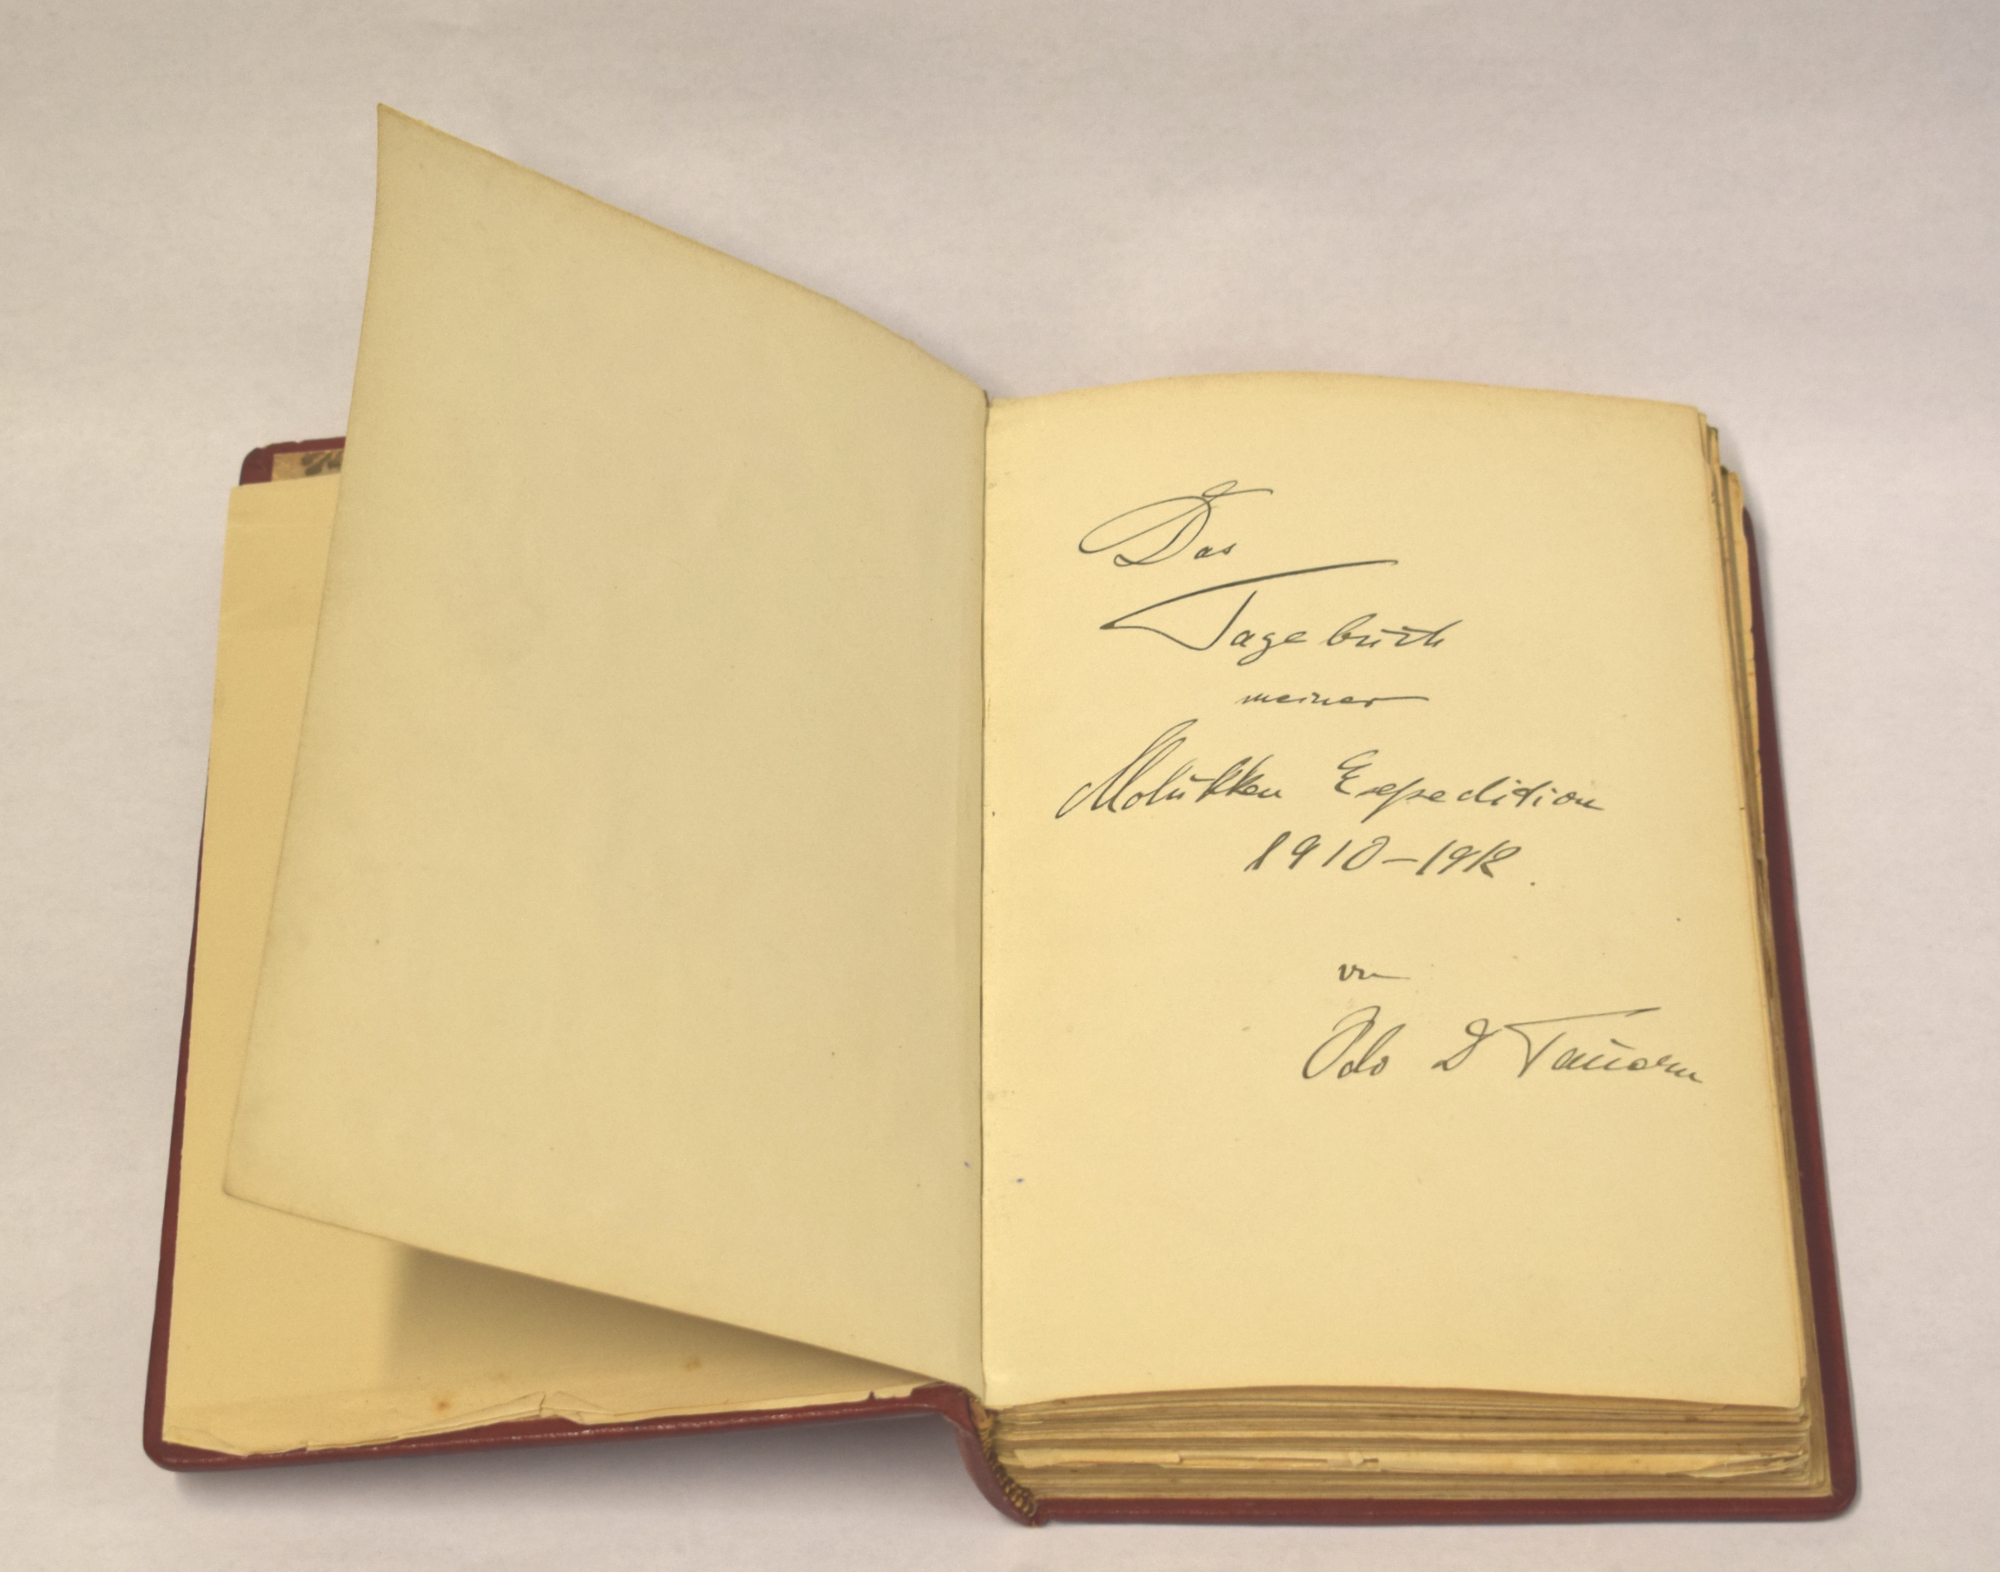 Das
Tagebuch
meiner
Molukken Expedition
1910-1912.
von
Odo D Tauern